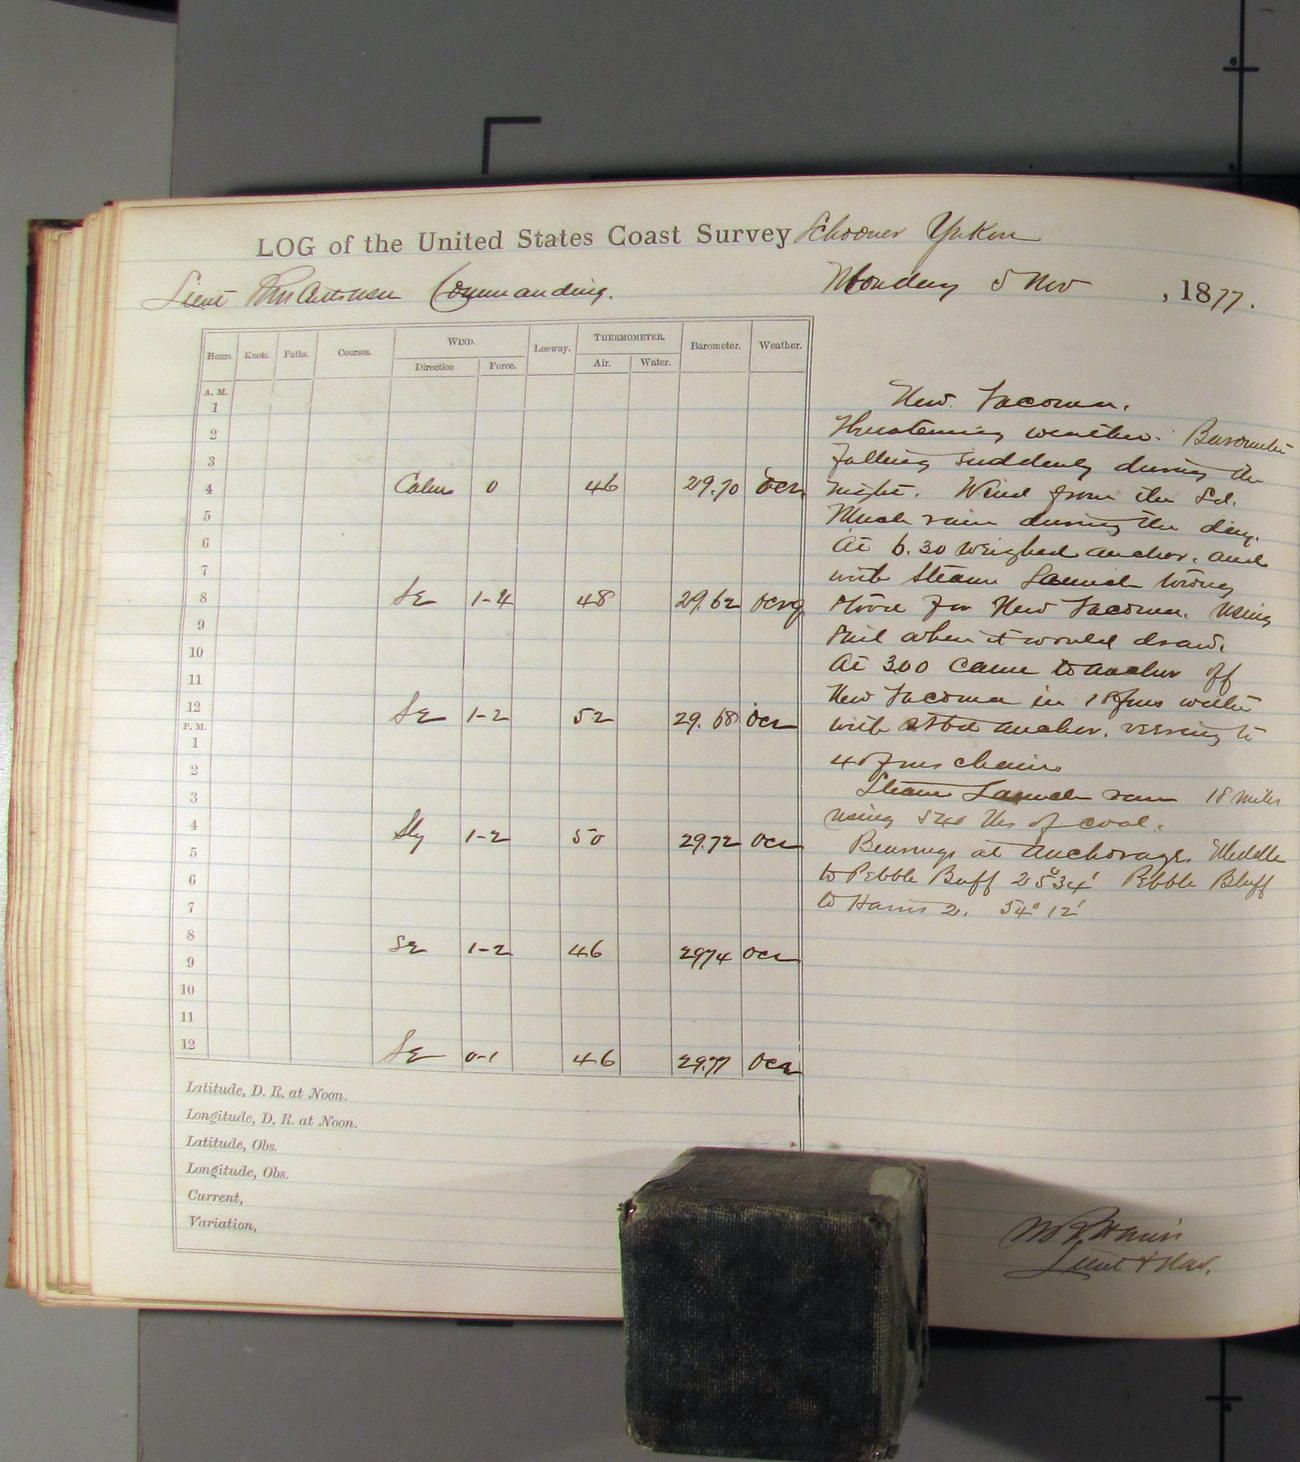 LOG of the United States Coast Survey Schooner Yukon
Lieut Commanding. Monday 5 Nov , 1877.
Hours. Knots. Faths. Courses. WIND. Leeway. THERMOMETER. Barometer. Weather.
Direction Force. Air. Water.
A. M.
1
2
3
4 Calm 0 46 29.70 ocr
5
6
7
8 SE 1-2 48 29.62 ocrq
9
10
11
12 SE 1-2 52 29.68 ocr
P. M.
1
2
3
4 Sly 1-2 50 29.72 ocr
5
6
7
8 SE 1-2 46 2974 ocr
9
10
11
12 SE 0-1 46 29.77 ocr
Latitude, D. R. at Noon.
Longitude, D. R. at Noon.
Latitude, Obs.
Longitude, Obs.
Current,
Variation,
New Tacoma.
Threatening weather. Barometer
falling suddenly during the
night. Wind from the Sd.
Much rain during the day.
At 6.30 weighed anchor. and
with Steam Launch towing
stood for New Tacoma. using
sail when it would draw.
At 3.00 came to anchor off
New Tacoma in 18 fms water
with Stbd anchor. veering to
40 fms chain
Steam Launch ran 18 miles
using 540 lbs of coal.
Bearings at anchorage. Middle
to Pebble Buff 25°34' Pebble Bluff
to Harris 2. 54° 12'
Harris
Lieut & Nav.